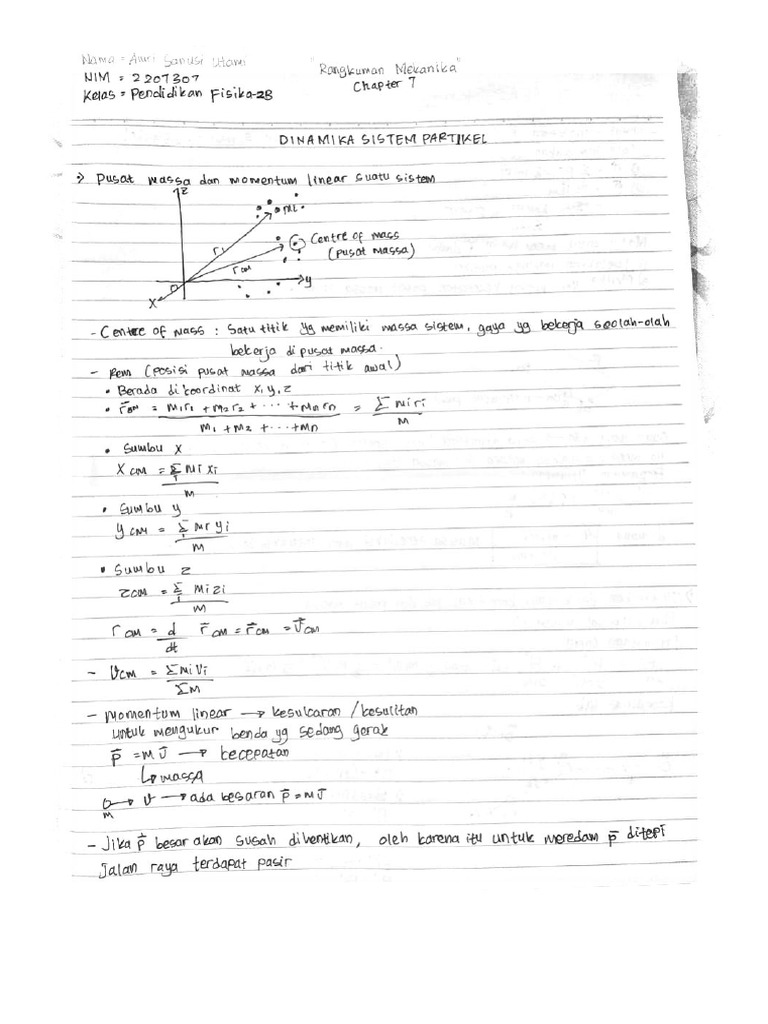 Nama = Auri Sanusi Utami
"Rangkuman Mekanika"
NIM = 2207307
Chapter 7
Kelas = Pendidikan Fisika-2B
DINAMIKA SISTEM PARTIKEL
> Pusat massa dan momentum linear suatu sistem
z
mi
r1
Centre of mass
(pusat massa)
rcm
O
y
x
- Centre of mass : Satu titik yg memiliki massa sistem, gaya yg bekerja seolah-olah
bekerja di pusat massa.
- rcm (posisi pusat massa dari titik awal)
• Berada di koordinat x, y, z
• r⃗cm = m1r1 + m2r2 + ... + mnrn / m1 + m2 + ... + mn = Σ miri / M
• Sumbu x
Xcm = Σi mi xi / M
• Sumbu y
Ycm = Σi mi yi / M
• Sumbu z
Zcm = Σi mi zi / M
rcm = d/dt r⃗cm = r⃗cm = v⃗cm
- Vcm = Σ mi vi / Σ M
- Momentum linear → kesukaran / kesulitan
untuk mengukur benda yg sedang gerak
p̄ = m v̄ → kecepatan
↳ massa
m → v → ada besaran p̄ = m v̄
- Jika p⃗ besar akan susah dihentikan, oleh karena itu untuk meredam p̄ ditepi
jalan raya terdapat pasir